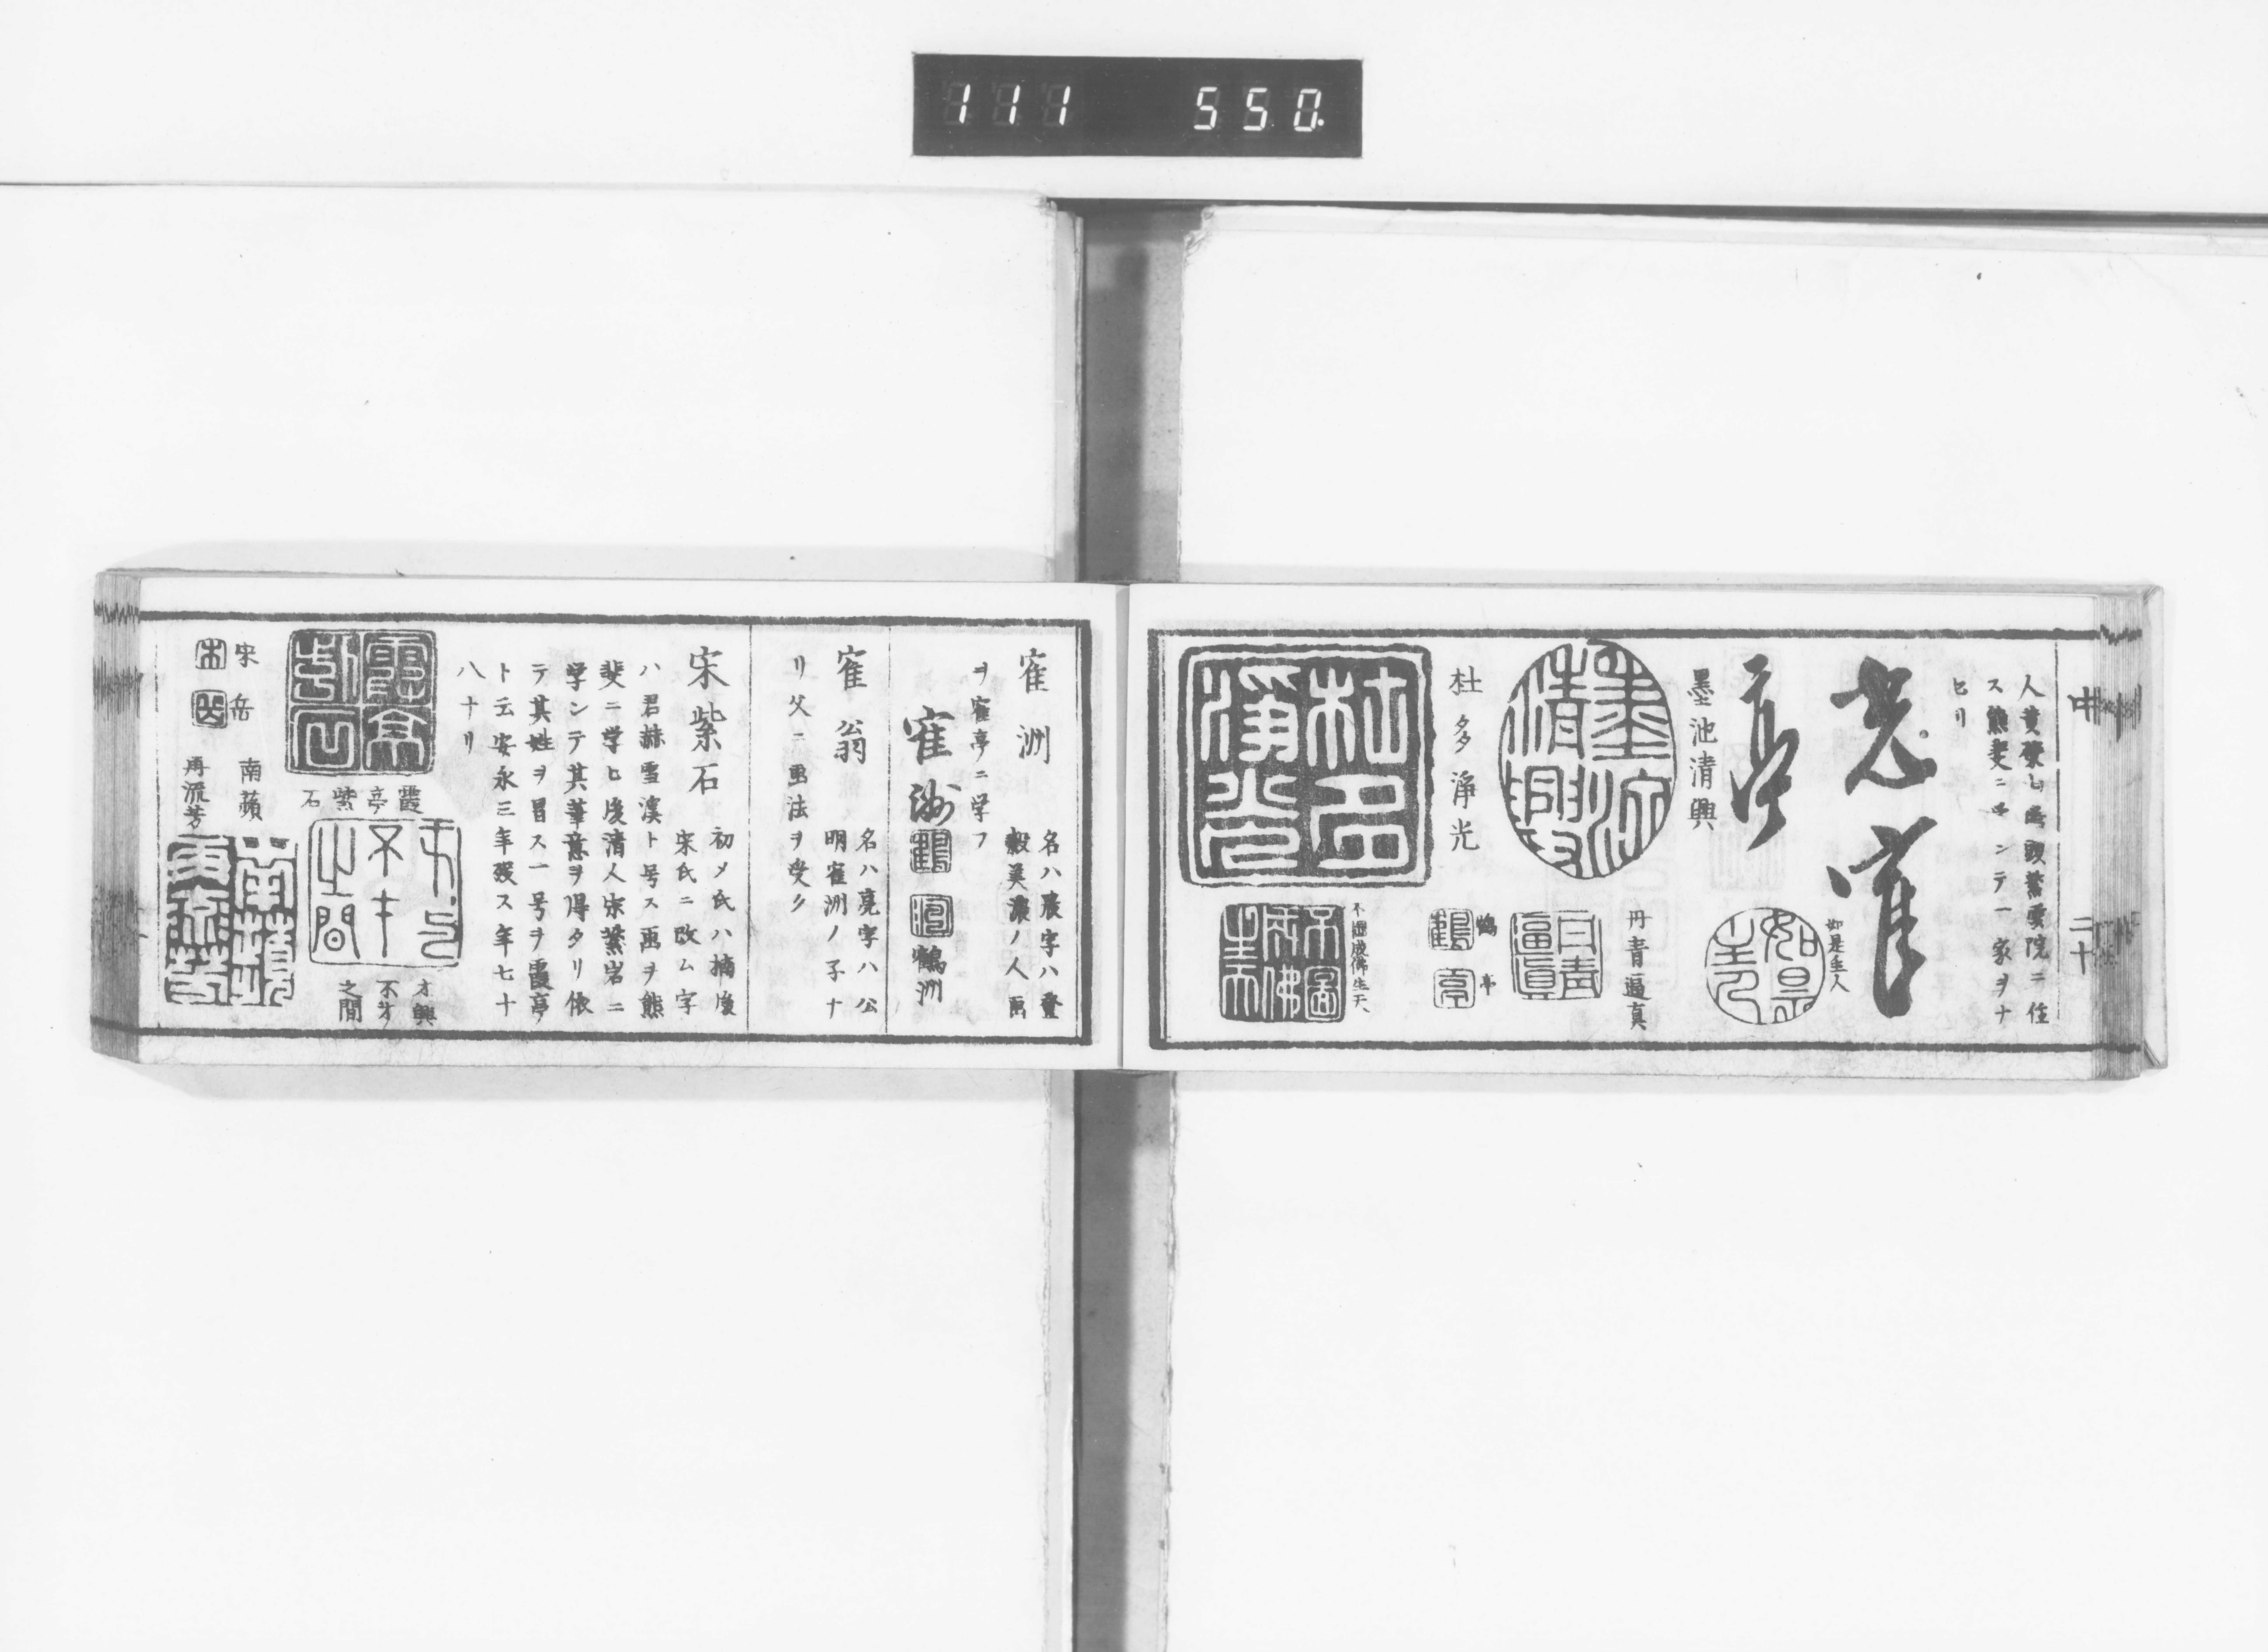 111 550.
中 二十
人黄檗山塔頭紫雲院ニ住
ス熊斐ニ学ンデ一家ヲナ
セリ
老寉
亭
如是主人
墨池清興
丹青逼真
杜多淨光
鶴亭
不遑成佛生天
寉洲
名ハ晨字ハ
穀美濃ノ人画
ヲ寉亭ニ学フ
寉洲
鶴洲
寉翁
名ハ亮字ハ公
明寉洲ノ子ナ
リ父ニ画法ヲ受ク
宋紫石
初メ氏ハ楠後
宋氏ニ改ム字
ハ君赫雪溪ト号ス画ヲ熊
斐ニ学ヒ後清人宋紫岩ニ
学ンテ其筆意ヲ得タリ依
テ其姓ヲ冒ス一号ヲ霞亭
ト云安永三年歿ス年七十
八ナリ
霞亭紫石
才與不才之間
宋岳
南蘋再流芳